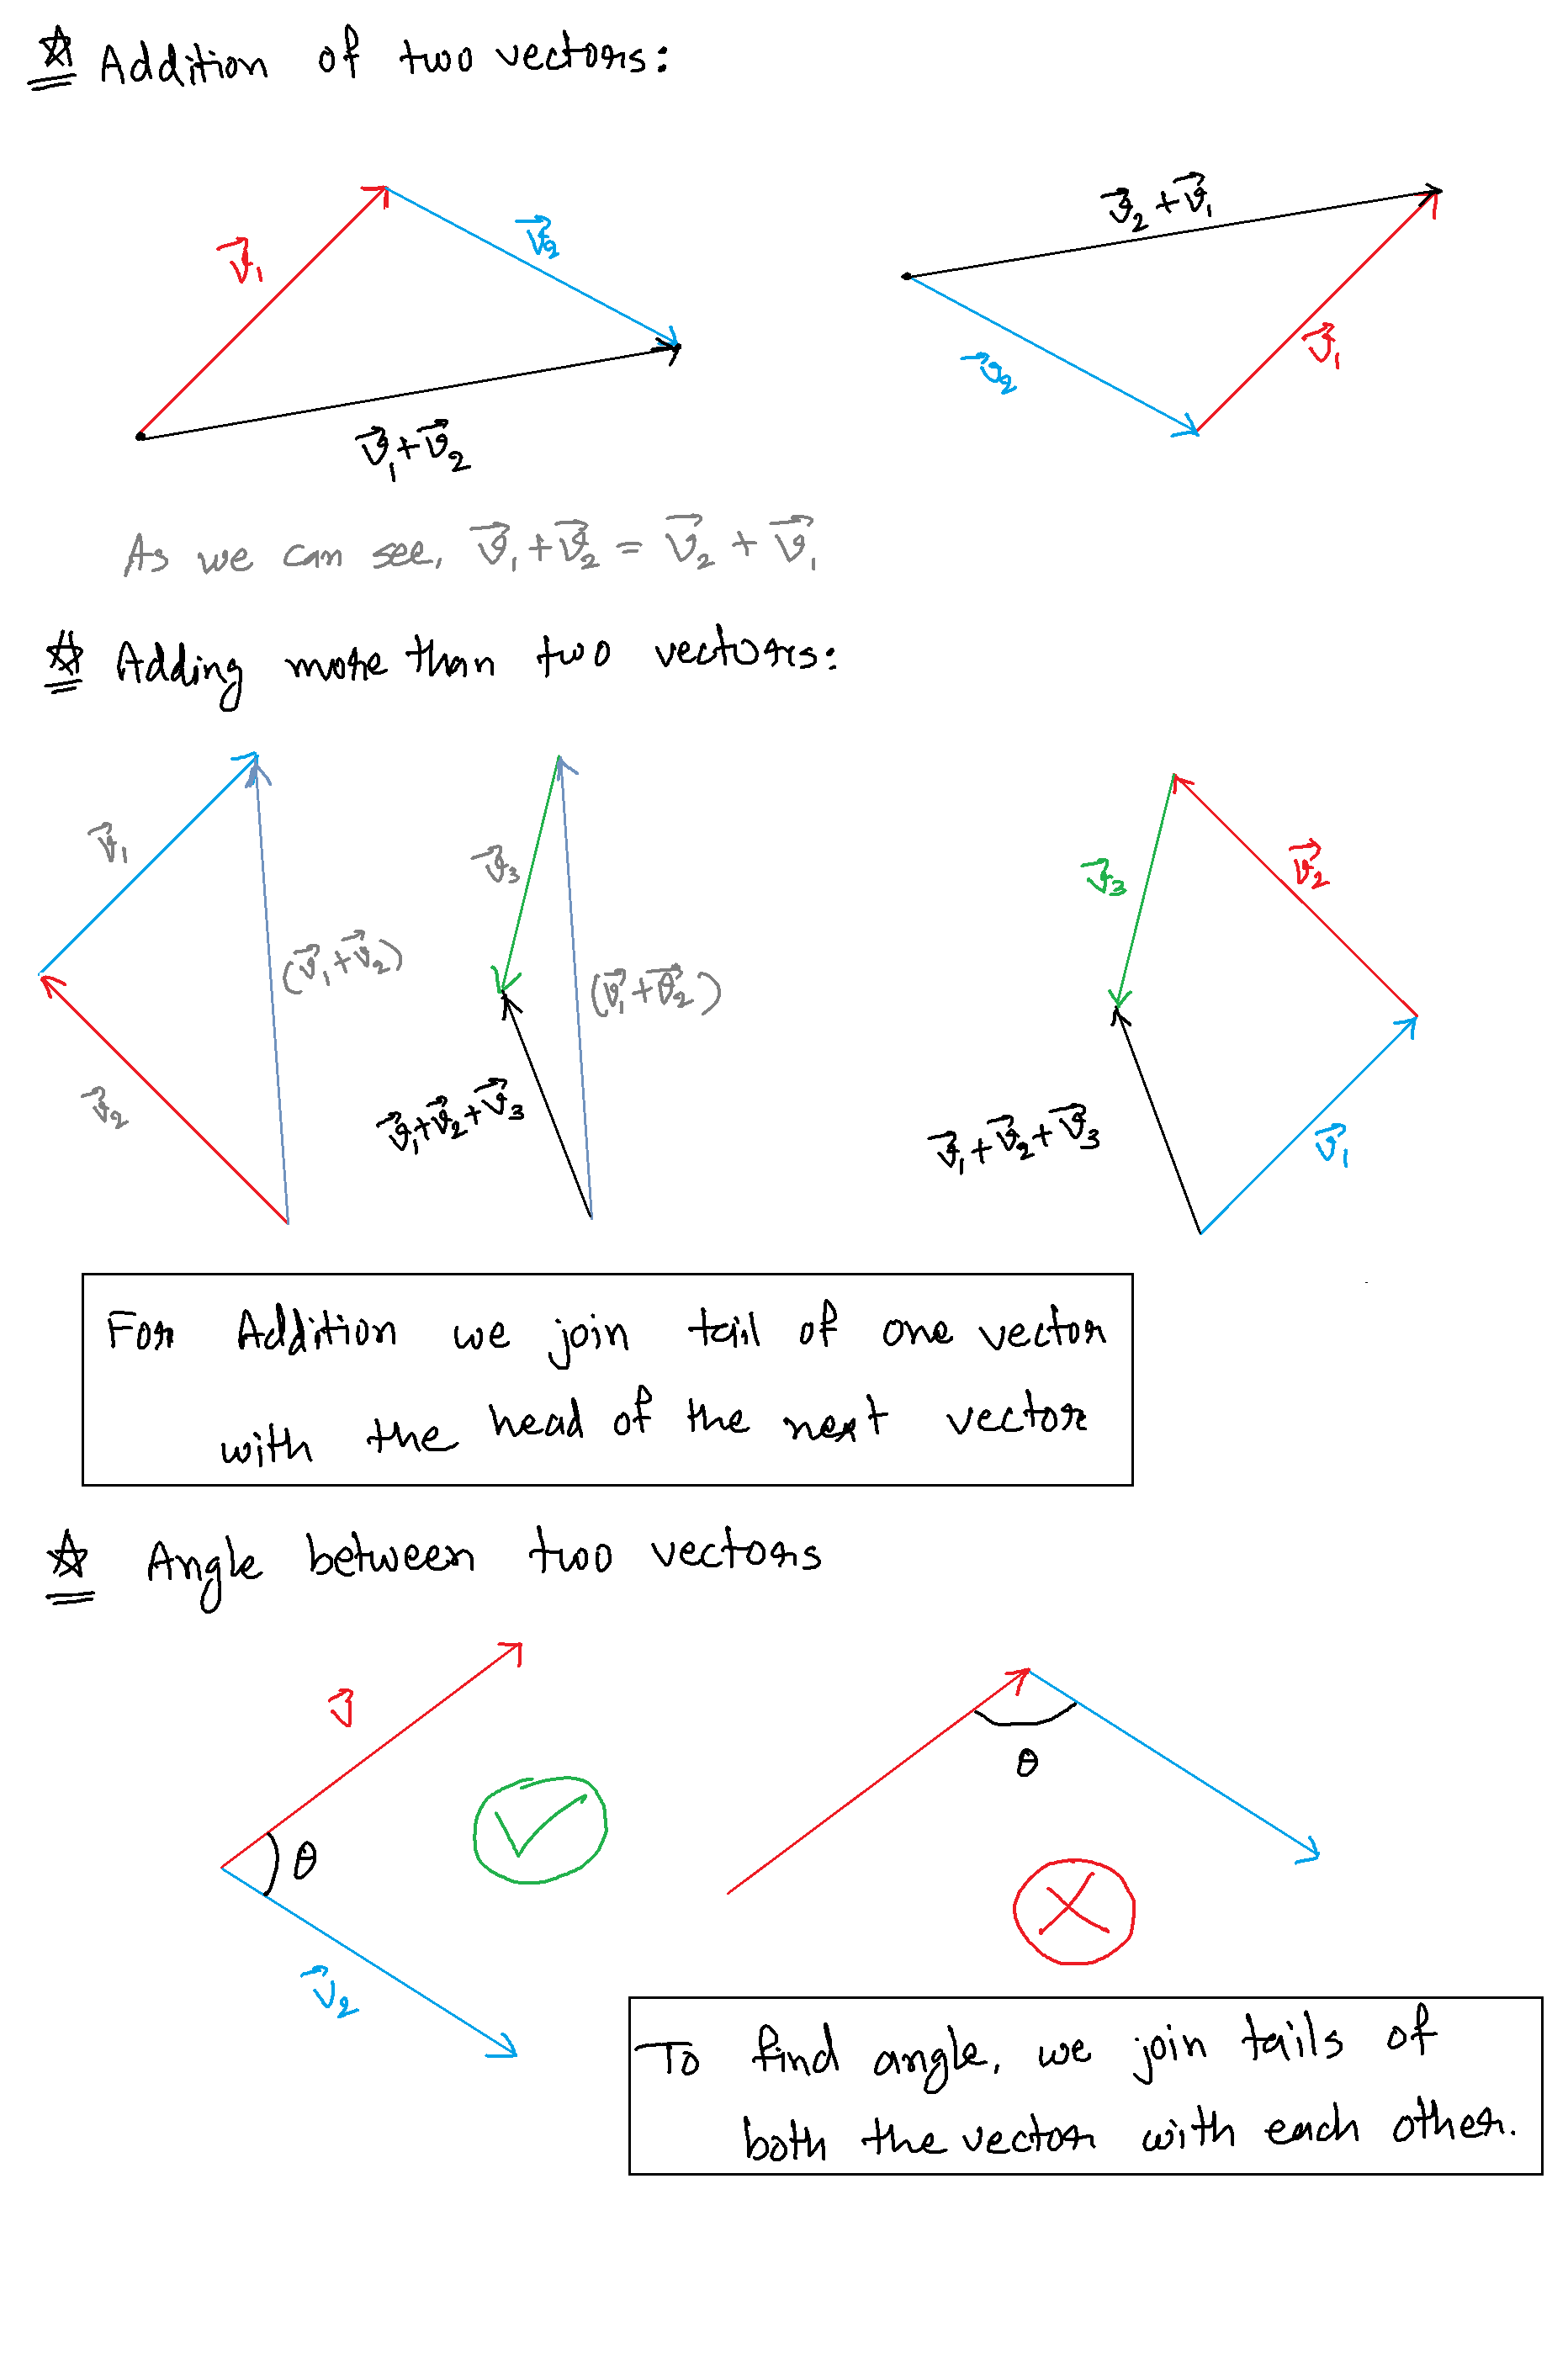 Addition of two vectors:
v⃗₂ + v⃗₁
v⃗₁
v⃗₂
v⃗₂
v⃗₁
v⃗₁ + v⃗₂
As we can see, v⃗₁ + v⃗₂ = v⃗₂ + v⃗₁
Adding more than two vectors:
v⃗₁
v⃗₃
v⃗₃
v⃗₂
(v⃗₁ + v⃗₂)
(v⃗₁ + v⃗₂)
v⃗₂
v⃗₁ + v⃗₂ + v⃗₃
v⃗₁ + v⃗₂ + v⃗₃
v⃗₁
For Addition we join tail of one vector
with the head of the next vector
Angle between two vectors
v⃗
θ
θ
v⃗₂
To find angle, we join tails of
both the vector with each other.